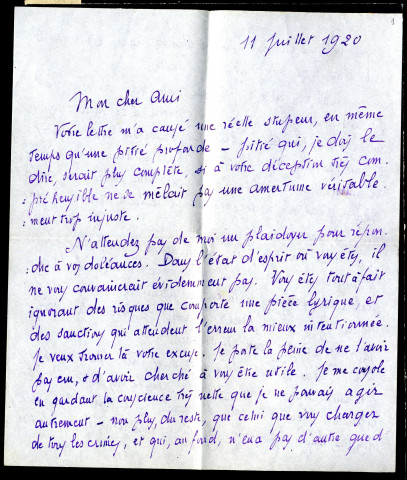 1
11 Juillet 1920
Mon cher Ami
Votre lettre m'a causé une réelle stupeur, en même
temps qu'une pitié profonde – pitié qui, je dois le
dire, serait plus complète, si à votre déception très com-
:préhensible ne se mêlait pas une amertume véritable-
:ment trop injuste.
N'attendez pas de moi un plaidoyer pour répon
:dre à vos doléances. Dans l'état d'esprit où vous êtes, il
ne vous convaincrait évidemment pas. Vous êtes tout à fait
ignorant des risques que comporte une pièce lyrique, et
des sanctions qu'attendent l'erreur la mieux intentionnée.
Je veux trouver là votre excuse. Je porte la peine de ne l'avoir
pas cru, & d'avoir cherché à vous être utile. Je me console
en gardant la conscience très nette que je ne pouvais agir
autrement – non plus, du reste, que celui que vous chargez
de tous les crimes, et qui, au fond, n'en a pas d'autre que d